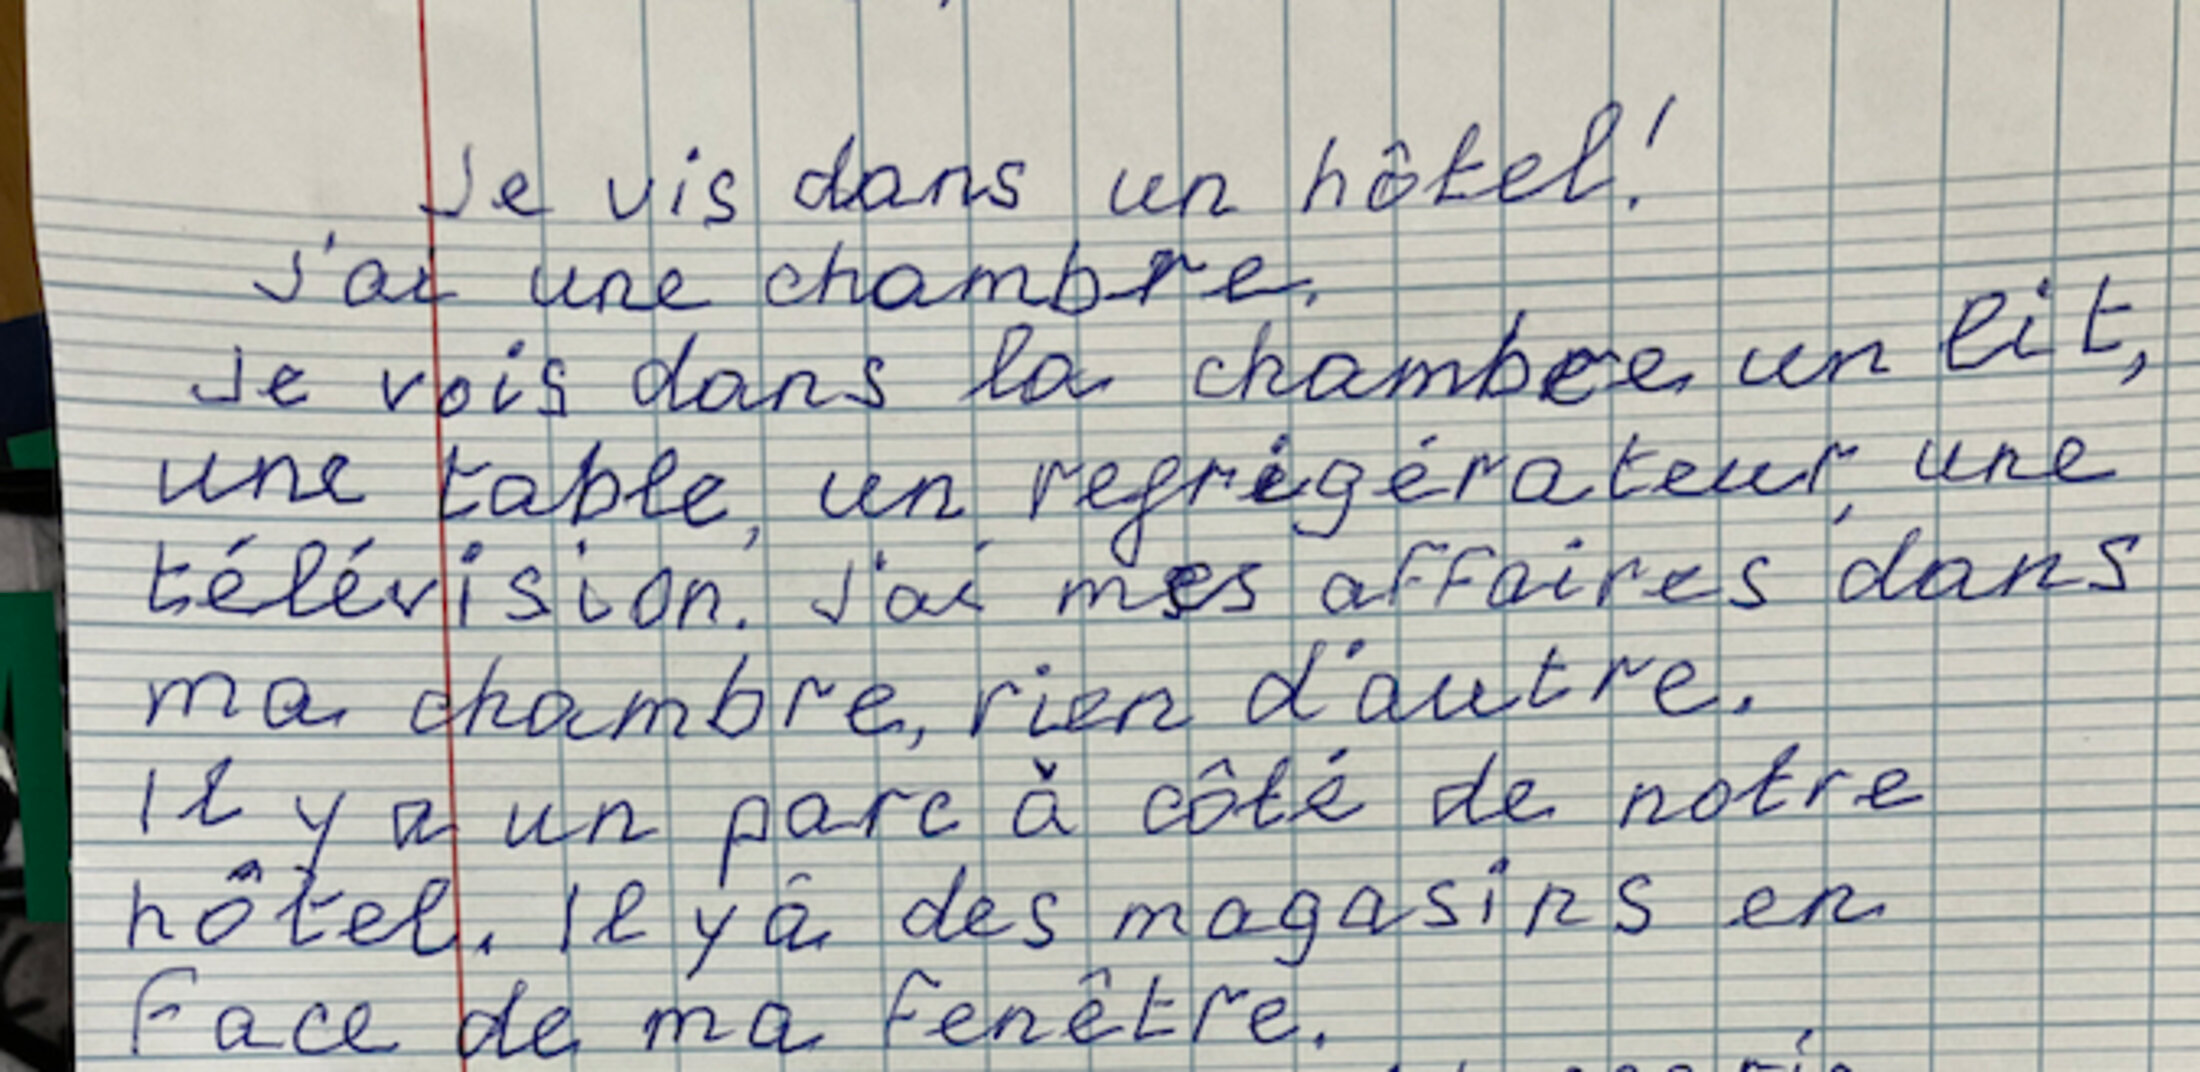 Je vis dans un hôtel!
J'ai une chambre.
Je vois dans la chambre un lit,
une table, un regrigérateur, une
télévision. J'ai mes affaires dans
ma chambre, rien d'autre.
Il y a un parc à côté de notre
hôtel. Il y â des magasins en
face de ma fenêtre.